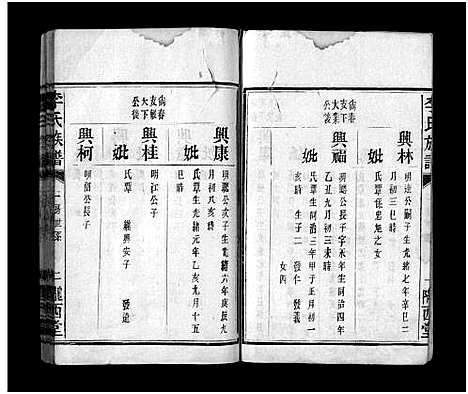 李氏族譜
隴西堂
興林
明達公嗣子生光緒七年辛巳二
月初三巳時
氏譚係思旭之女
尚春
支下
大業
公後
興福
妣
明璐公長子字永年生同治四年
乙丑九月初三未時
氏譚生同治三年甲子正月初一
亥時 生子二 發仁 發義
女四
興康
妣
明璐公次子生光緒六年庚辰九
月初八亥時
氏譚生光緒元年乙亥九月十五
巳時
尚春
支下
大
公後
興桂
妣
明江公子
氏譚 繼興安子 發造
興柯
明紹公長子
李氏族譜
二
隴西堂